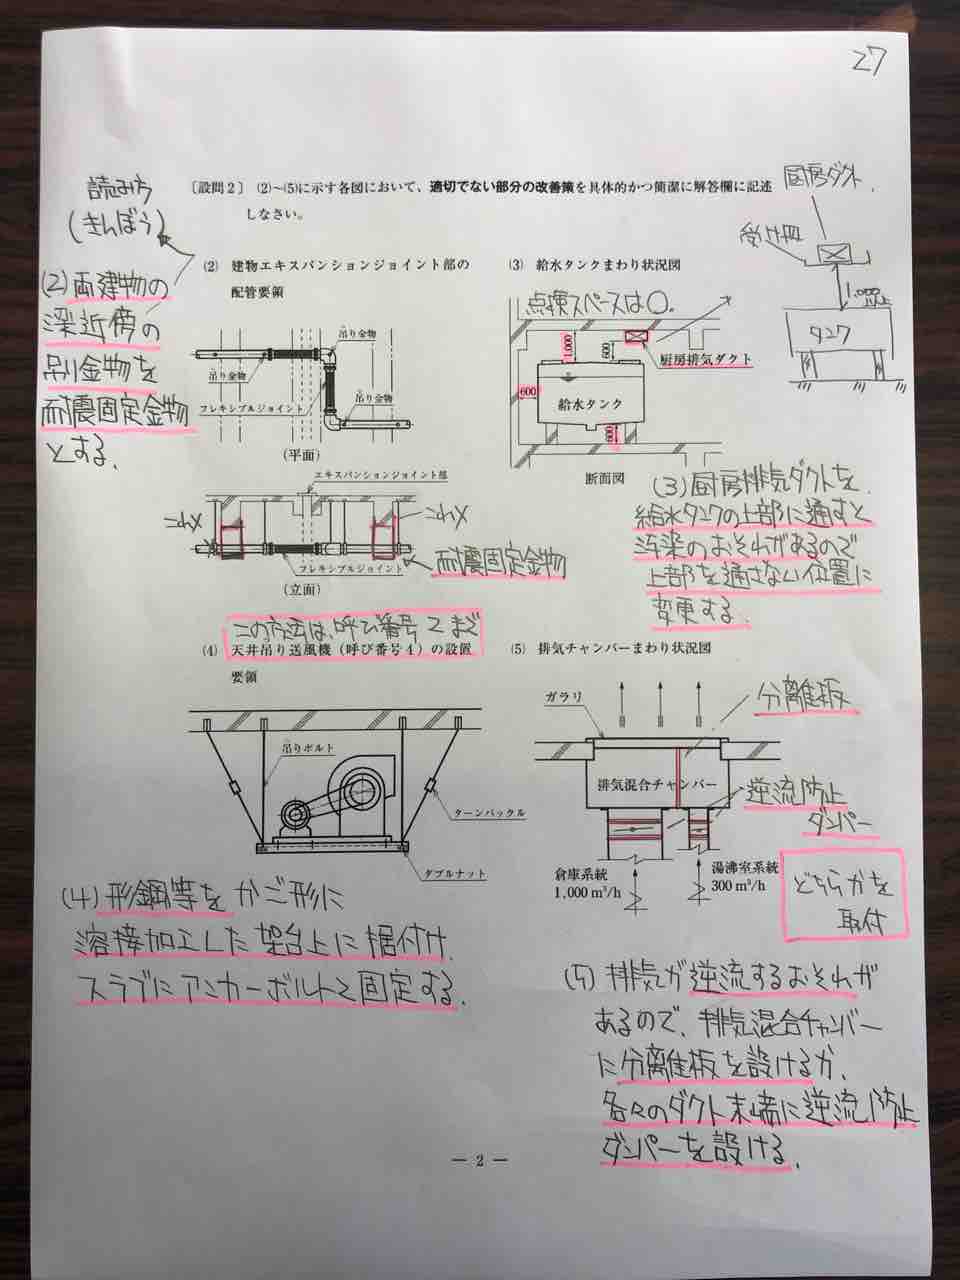 27
〔設問2〕 (2)~(5)に示す各図において、適切でない部分の改善策を具体的かつ簡潔に解答欄に記述
しなさい。
読み方
(きんぼう)
(2) 両建物の
深近傍の
吊り金物を
耐震固定金物
とする。
(2) 建物エキスパンションジョイント部の
配管要領
吊り金物
吊り金物
フレキシブルジョイント
吊り金物
(平面)
エキスパンションジョイント部
これメ
これメ
フレキシブルジョイント
耐震固定金物
(立面)
(3) 給水タンクまわり状況図
点検スペースは○。
1,000
600
厨房排気ダクト
600
給水タンク
600
断面図
厨房ダクト
受け皿
1,000
以上
タンク
(3) 厨房排気ダクトを、
給水タンクの上部に通すと
汚染のおそれがあるので
上部を通さない位置に
変更する。
この方法は、呼び番号2まで
(4) 天井吊り送風機(呼び番号4)の設置
要領
吊りボルト
ターンバックル
ダブルナット
(4) 形鋼等をかご形に
溶接加工した架台上に据付け
スラブにアンカーボルトで固定する。
(5) 排気チャンバーまわり状況図
ガラリ
分離板
排気混合チャンバー
逆流防止
ダンパー
倉庫系統
1,000 m³/h
湯沸室系統
300 m³/h
どちらかを
取付
(5) 排気が逆流するおそれが
あるので、排気混合チャンバー
に分離板を設けるか、
各々のダクト末端に逆流防止
ダンパーを設ける。
— 2 —